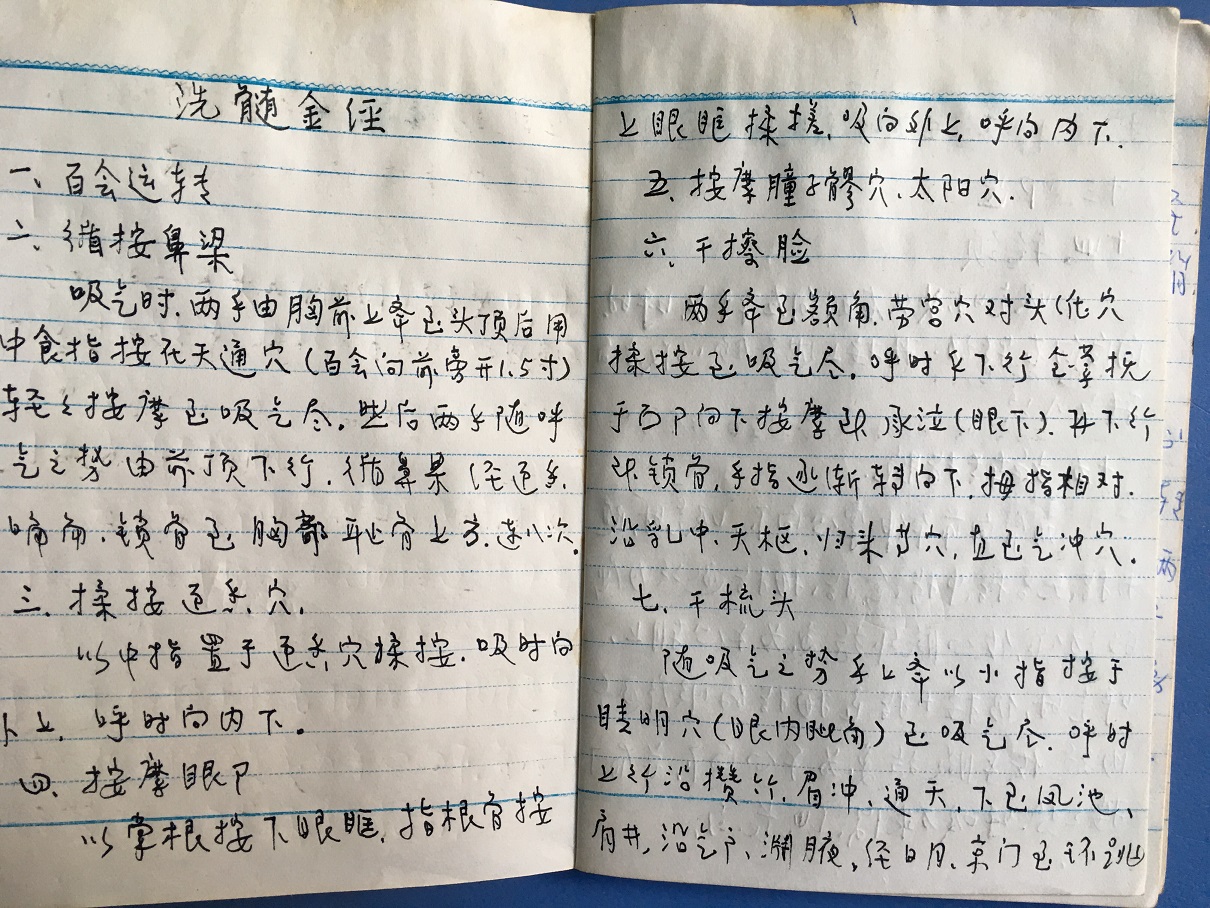 洗髓金经
一、百会运转
二、循按鼻梁
吸气时,两手由胸前上举至头顶后用
中食指按在天通穴(百会向前旁开1.5寸)
轻轻按摩至吸气尽。然后两手随呼
气之势由前顶下行,循鼻梁经迎香,
嘴角、锁骨至胸部耻骨上方,连八次。
三、揉按迎香穴,
以中指置于迎香穴揉按,吸时向
外上,呼时向内下。
四、按摩眼部
以掌根按下眼眶,指根骨按
上眼眶揉搓,吸向外上,呼向内下.
五、按摩瞳子髎穴、太阳穴.
六、干擦脸
两手举至额角,劳宫穴对头维穴
揉按至吸气尽,呼时手下行全掌抚
于面部向下按摩到承泣(眼下),再下行
到锁骨,手指逐渐转向下,拇指相对.
沿乳中、天枢、归来等穴,直至气冲穴。
七、干梳头
随吸气之势手上举以小指按于
睛明穴(眼内眦角)至吸气尽.呼时
上行沿攒竹、眉冲、通天,下至风池、
肩井,沿气户、渊腋,经日月、京门至环跳